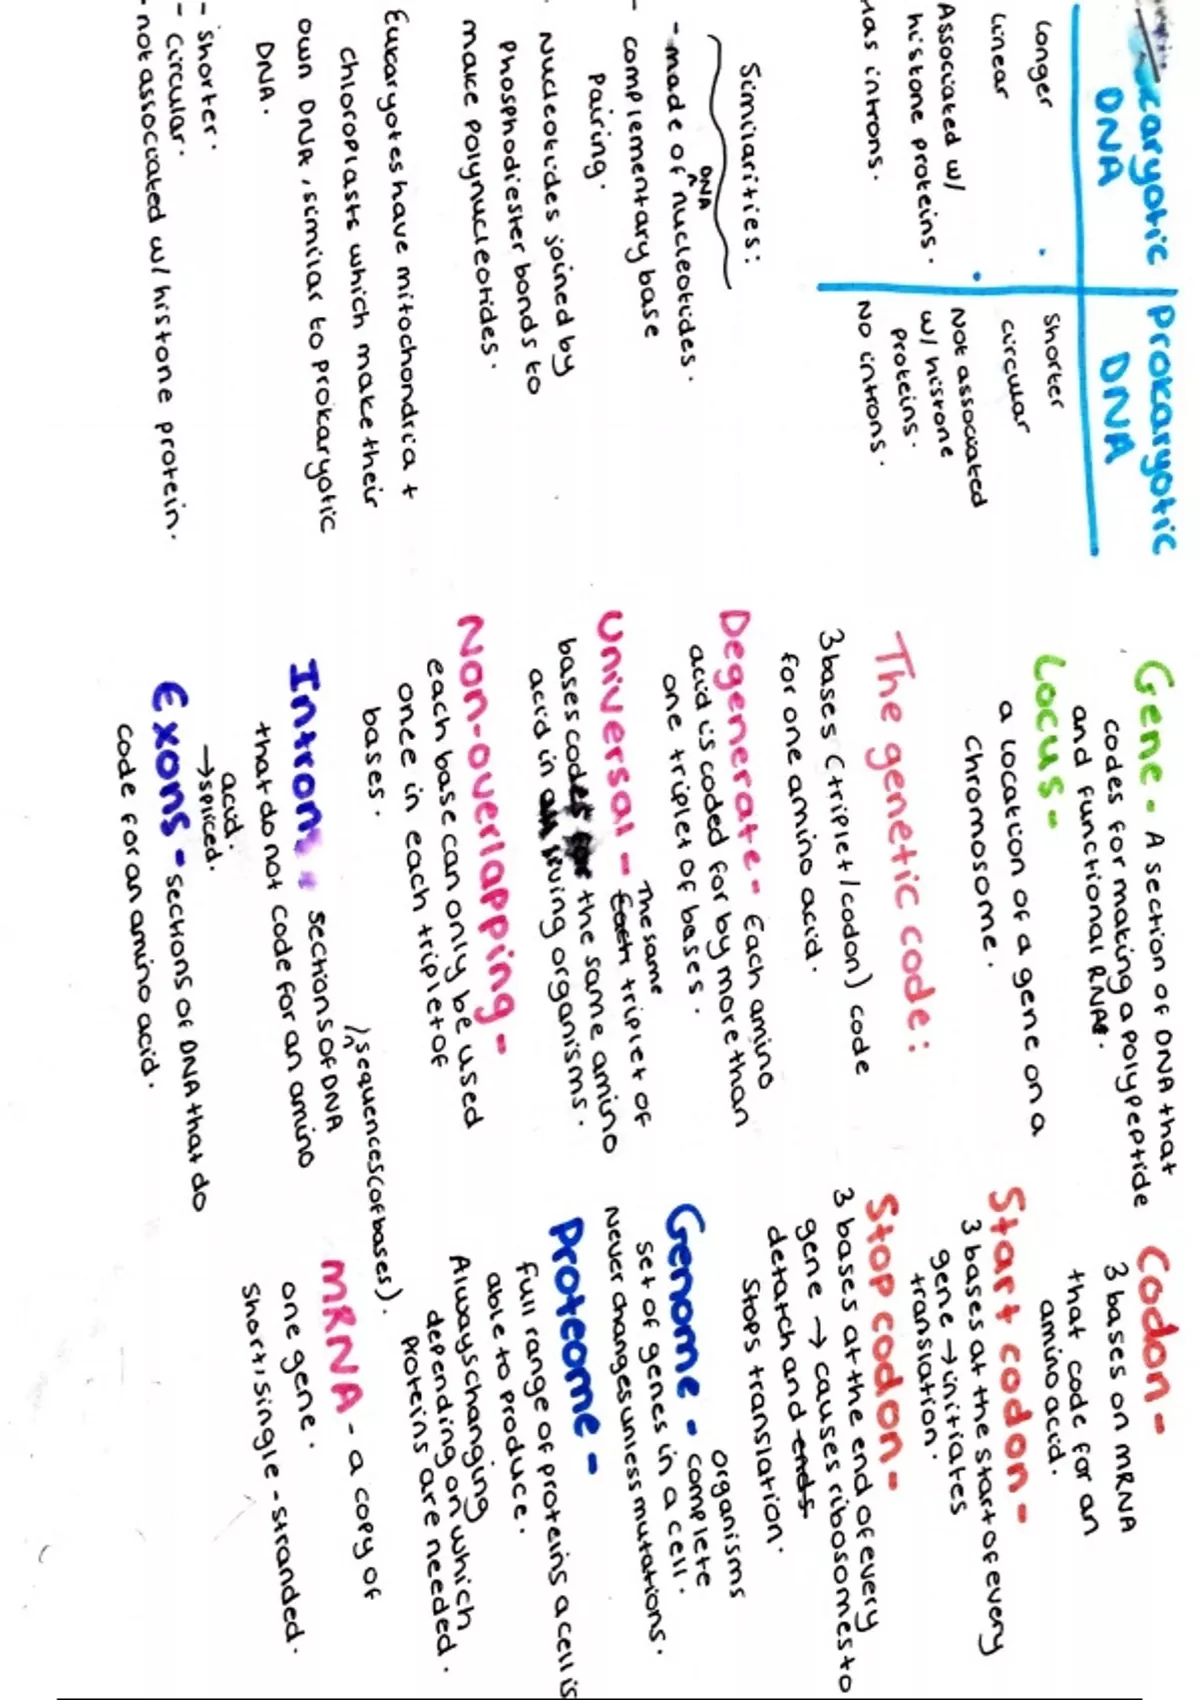 caryotic DNA | Prokaryotic DNA
Longer
Linear
Associated w/
histone proteins.
Has introns.
Shorter
circular
Not associated
w/ histone
proteins.
No introns.
Similarities:
- made of DNA nucleotides.
- complementary base
pairing.
Nucleotides joined by
phosphodiester bonds to
make polynucleotides.
Eukaryotes have mitochondria +
chloroplasts which make their
own DNA, similar to prokaryotic
DNA.
- shorter.
- circular.
- not associated w/ histone protein.
Gene - A section of DNA that
codes for making a polypeptide
and functional RNA.
Locus -
a location of a gene on a
chromosome.
The genetic code:
3 bases (triplet/codon) code
for one amino acid.
Degenerate - Each amino
acid is coded for by more than
one triplet of bases.
Universal - The same
Each triplet of
bases codes for the same amino
acid in all living organisms.
Non-overlapping -
each base can only be used
once in each triplet of
bases.
Intron - sections of DNA
, sequences (of bases).
that do not code for an amino
acid.
→ spliced.
Exons - sections of DNA that do
code for an amino acid.
Codon -
3 bases on mRNA
that code for an
amino acid.
Start codon -
3 bases at the start of every
gene → initiates
translation.
Stop codon -
3 bases at the end of every
gene → causes ribosomes to
detatch and ends
stops translation.
Genome - organisms
complete
set of genes in a cell.
Never changes unless mutations.
Proteome -
full range of proteins a cell is
able to produce.
Always changing
depending on which
proteins are needed.
mRNA - a copy of
one gene.
Short, single-stranded.